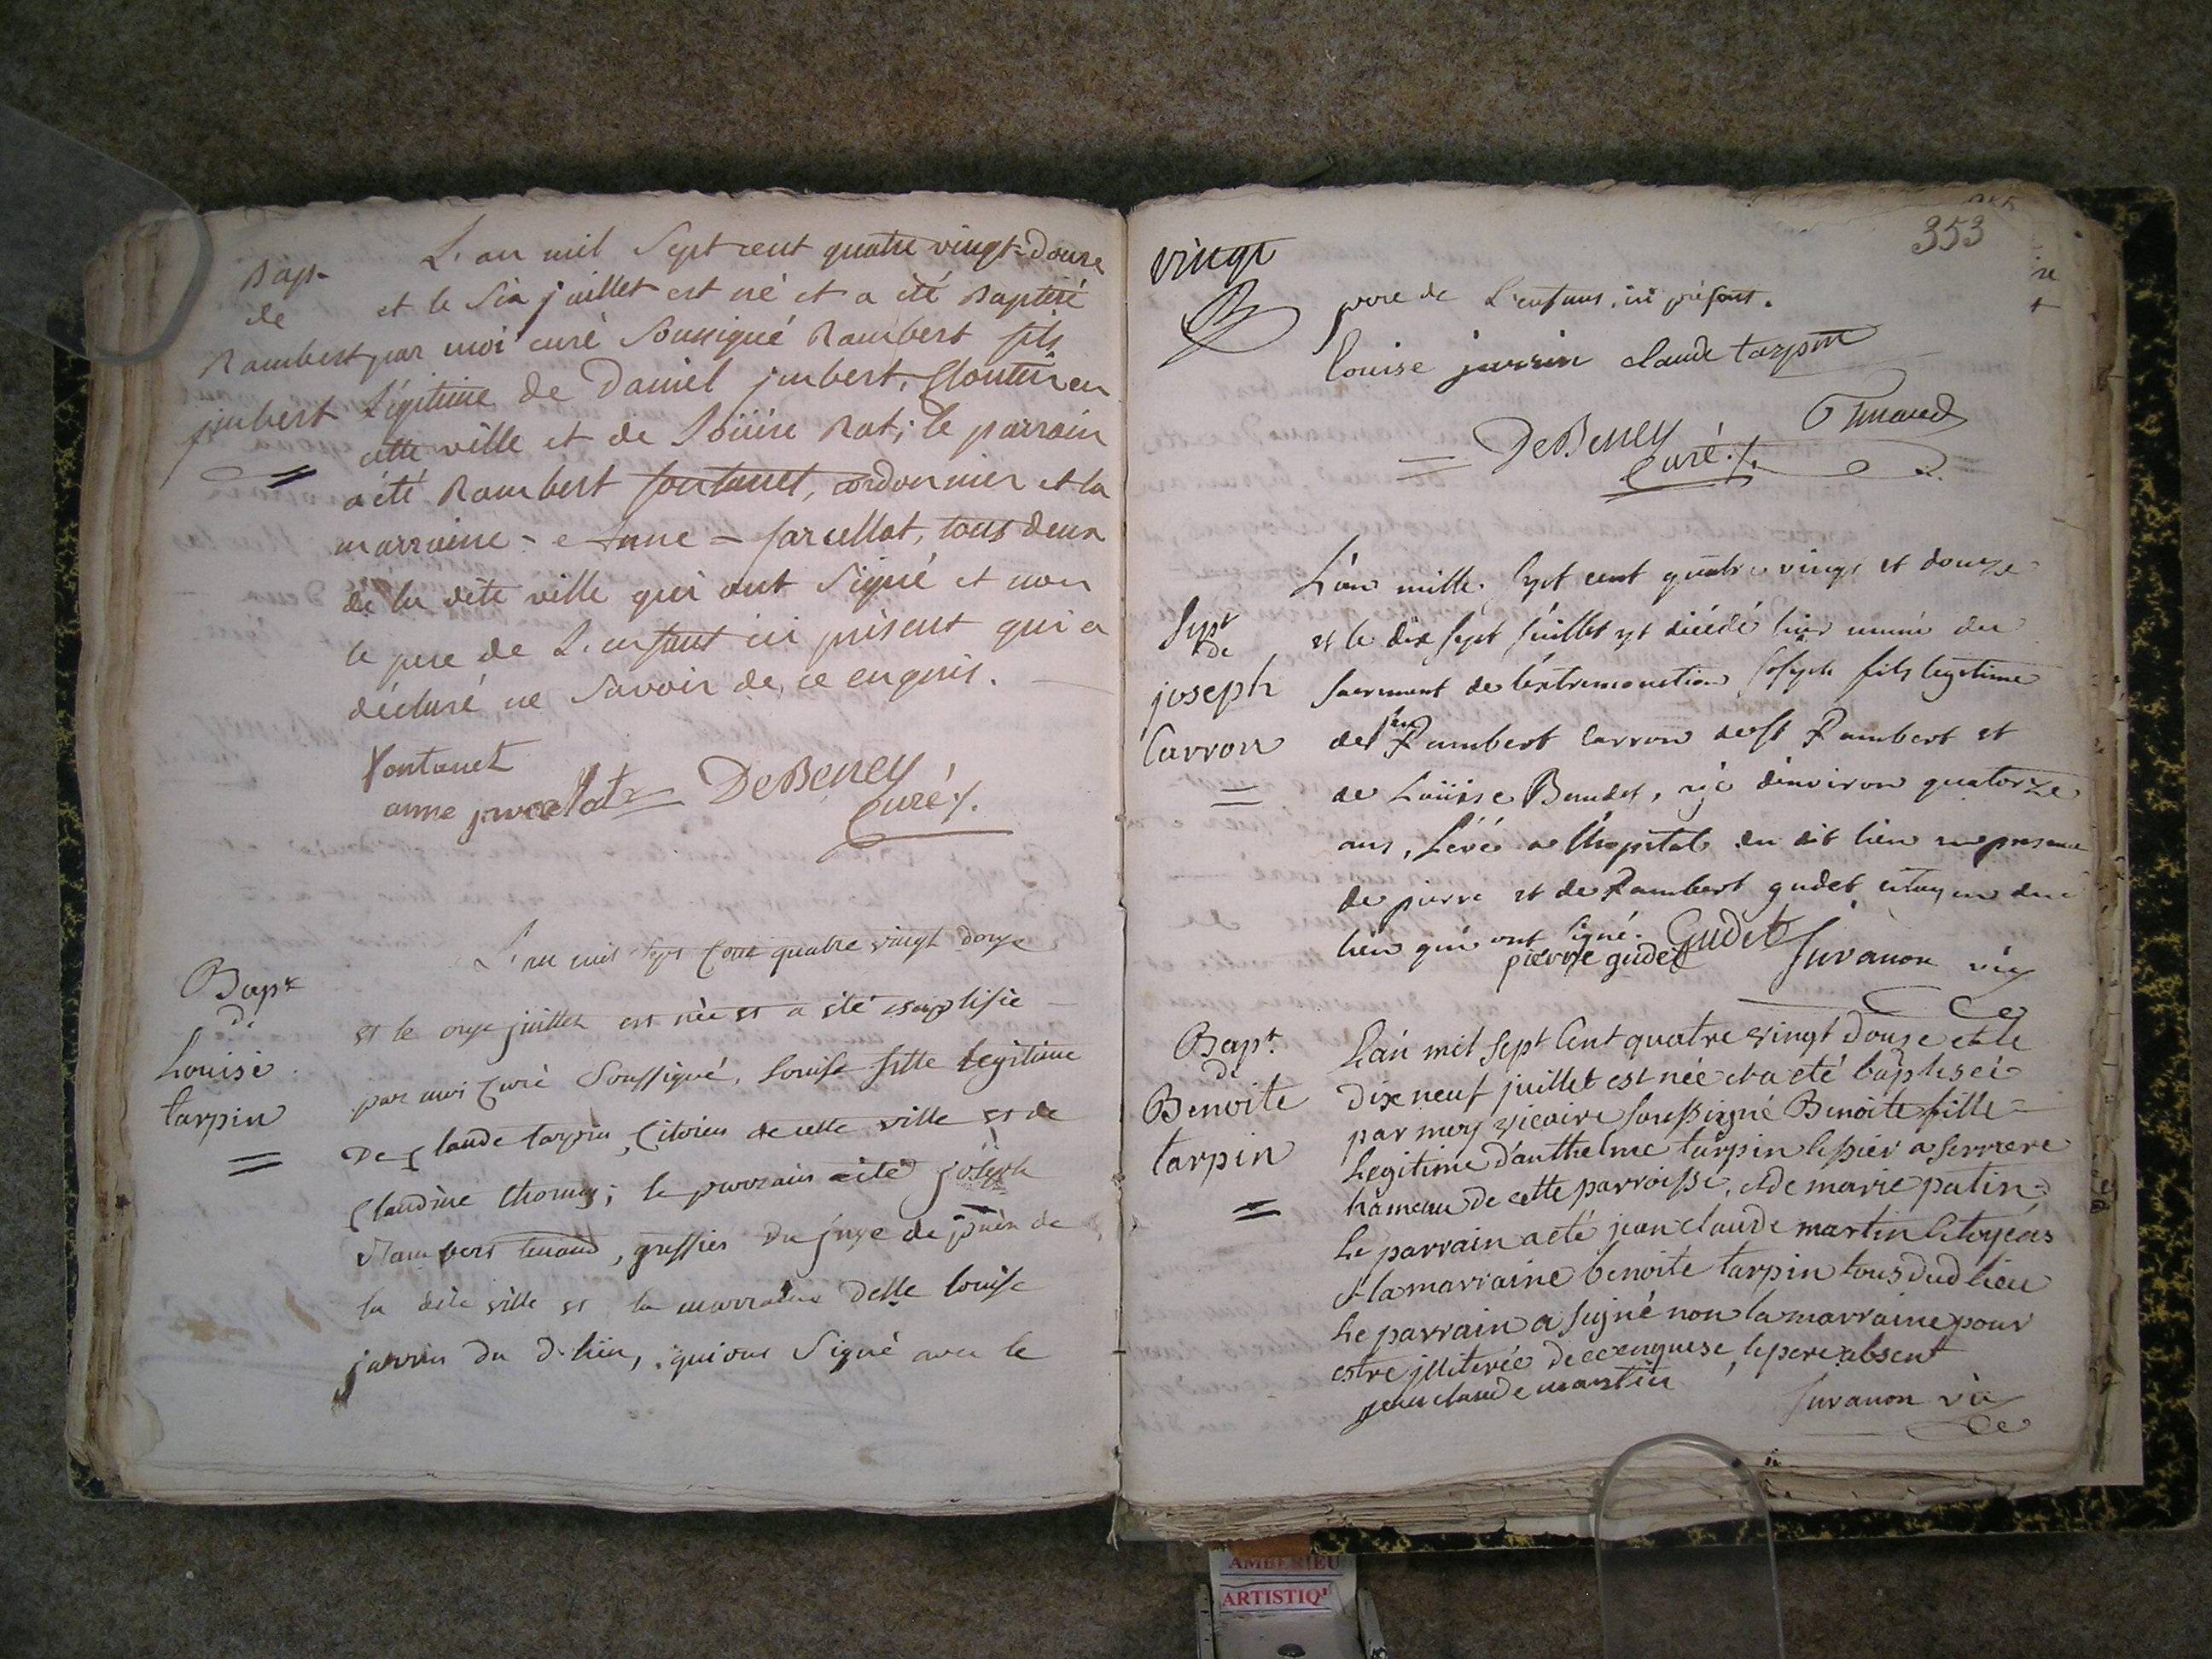 Bapt
de
Rambert
jmbert
L'an mil Sept cent quatre vingt-Douze
et le Six juillet est né et a été Baptisé
par moi curé Soussigné Rambert fils
Légitime de Daniel jmbert, Cloutier en
cette ville et de Loüise Rat; le parrain
a été Rambert fontanet, cordonnier et la
marraine - Anne - farcellat, tous deux
de la dite ville qui ont Signé et non
le pere de L'enfant ici présent qui a
déclaré ne Savoir de ce enquis.
fontanet
anne
DeBeney
Curé
Bapt
de
Louise
tarpin
L'an mil Sept Cent quatre vingt douze
et le onze juillet est née et a été baptisée
par moi Curé Soussigné, Louise fille Legitime
De Claude tarpin Citoien de cette ville et de
Claudine thomas; le parrain a été joseph
Rambert tenand, greffier Du juge de paix de
la dite ville et la marraine Delle louise
jarrin du d. lieu, qui ont Signé avec le
353
vingt
pere de L'enfant ici présent.
Louise jarrin claude tarpin
Tenand
DeBeney
Curé
Sept
de
joseph
Carron
L'an mille Sept cent quatre vingt et douze
et le dix sept juillet est décédé hier muni du
Sacrement de l'extremonction joseph fils legitime
de Rambert Carron de St Rambert et
de Loüise Baudet, agé d'environ quatorze
ans, Levé a l'hopital du dit lieu en presence
de pierre et de Rambert gudet citoyen du
lieu qui ont Signé. Gudet
pierre gudet Juvanon vic
Bapt
de
Benoite
tarpin
L'an mil Sept Cent quatre vingt douze et le
Dix neuf juillet est née et a été baptiseé
par moy vicaire Soussigné Benoite fille
Legitime d'anthelme tarpin a Serriere
hameau de cette parroisse, et de marie patin
Le parrain a été jean claude martin Citoyens
et la marraine benoite tarpin tous dud lieu
Le parrain a Signé non la marraine pour
estre jlliterée de ce enquise, le pere absent
jean claude martin
Juvanon vic
AMBERIEU
ARTISTIQ'